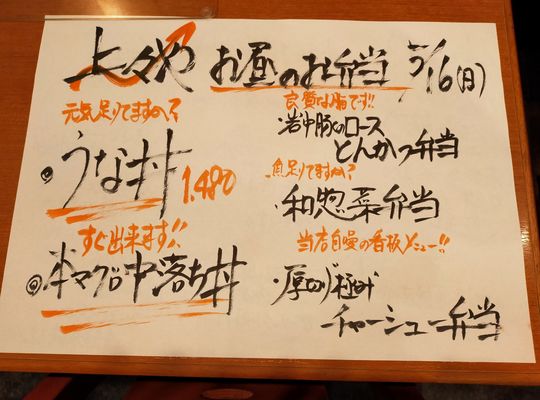 上々や お昼のお弁当 5/16(日)
元気足りてますか?
うな丼 1,480
すぐ出来ます!!
本マグロ中落ち丼
良質な脂です!!
岩中豚のロース
とんかつ弁当
魚足りてますか?
和惣菜弁当
当店自慢の看板メニュー!!
厚切り極み
チャーシュー弁当